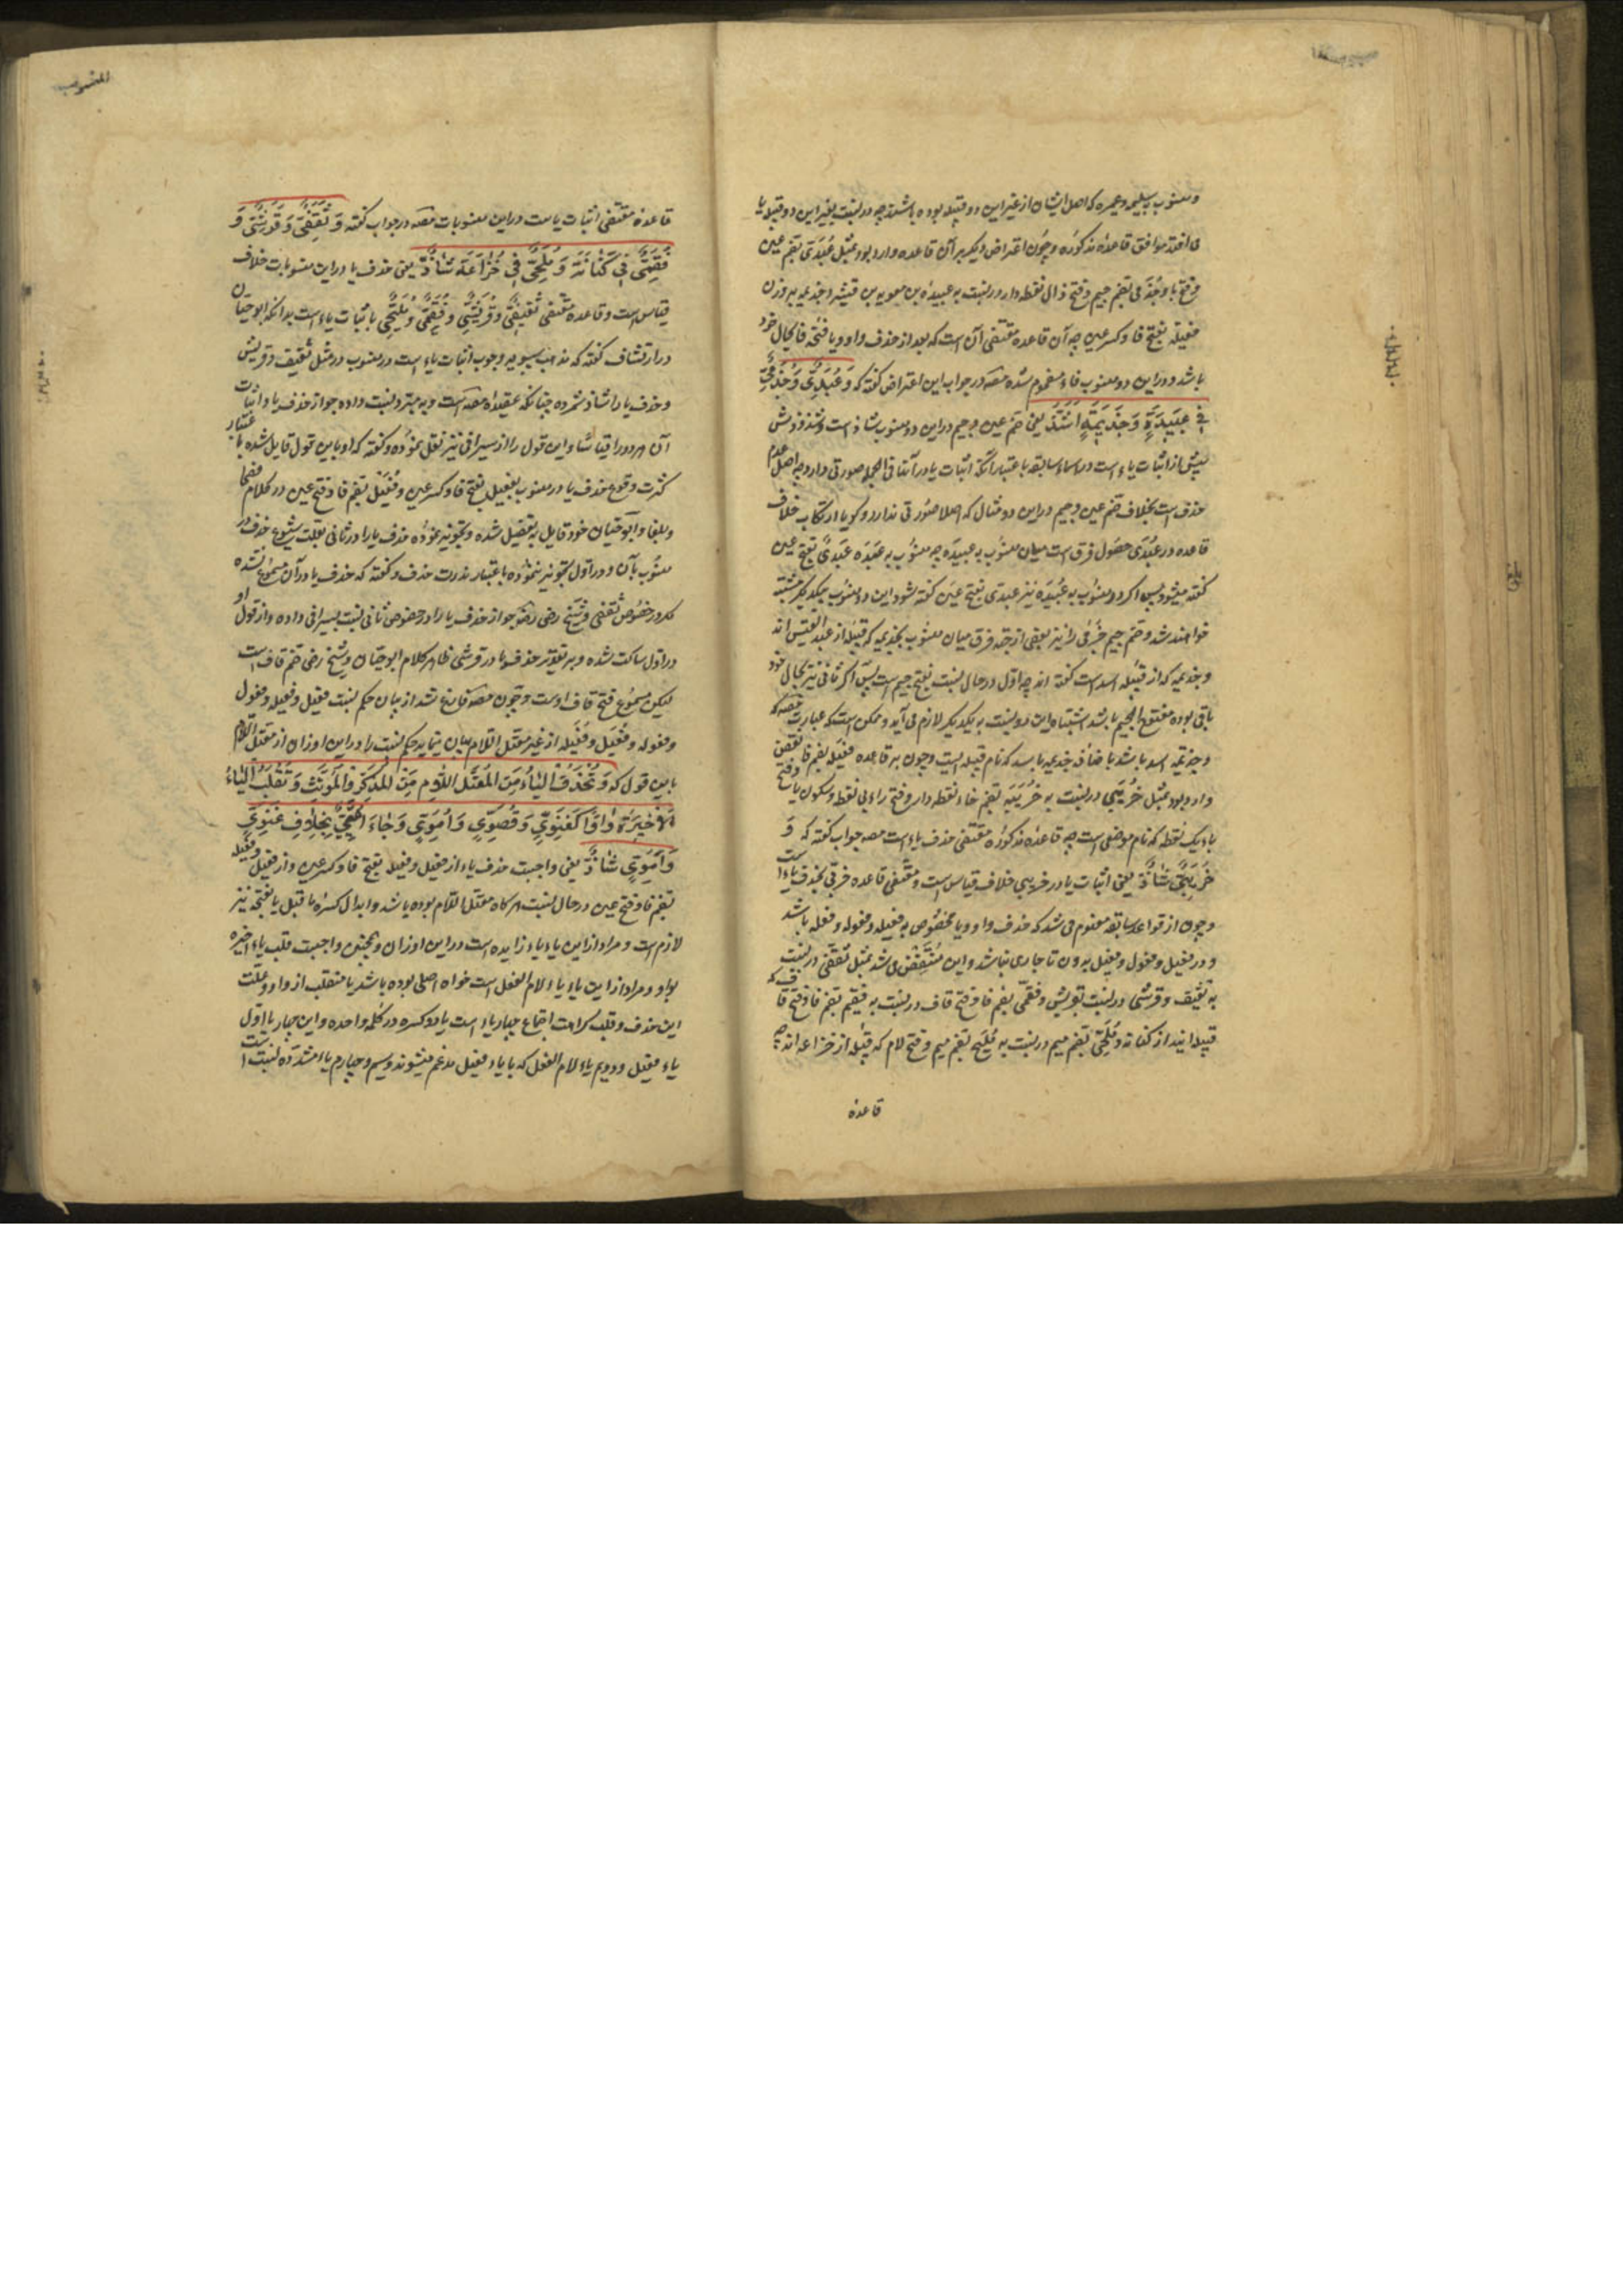 ومنسوب بسلیمه وعمیره که اصل ایشان از غیر این دو قبیله بوده باشند چه در نسبت بغیر این دو قبیله یا
می افتد موافق قاعده مذکوره وچون اعتراض دیگر بر آن قاعده وارد بود بمثل عُبَدِی بضم عین
وفتح با وجُذَمی بضم جیم وفتح ذال نقطه دار در نسبت به عبیده بن معویه بن قشیر وجذیمه بر وزن
فعیله بفتح فا وکسر عین چه آن قاعده مقتضی آن است که بعد از حذف واو ویا فتحه فا بحال خود
باشد ودر این دو منسوب فاء مضموم شده مصه در جواب این اعتراض گفته که وَعُبَدِیٌّ وَجُذَمِیٌّ
فِی عَبِیدَةٍ وَجَذِیمَةٍ اَشَذُّ یعنی ضم عین وجیم در این دو منسوب شاذ است وشذوذش
بیش از اثبات یاء است در اسماء سابقه باعتبار آنکه اثبات یا در آنها فی الجمله صورتی دارد چه اصل عدم
حذف است بخلاف ضم عین وجیم در این دو مثال که اصلا صورتی ندارد وگویا ارتکاب خلاف
قاعده در عُبَدی حصول فرق است میان منسوب به عبیدَه چه منسوب به عَبَدَه عَبَدیّ بفتح عین
گفته میشود پس اگر در منسوب به عُبَیدَه نیز عبدی بفتح عین گفته شود این دو منسوب بیکدیگر مشتبه
خواهند شد وضم جیم جُذَمی را نیز بعضی از جهة فرق میان منسوب بجذیمه که قبیله از عبد القیس اند
وجذیمه که از قبیله اسد است گفته اند چه اول در حال نسبت بفتح جیم است پس اگر ثانی نیز بحال خود
باقی بوده مفتوح الجیم باشد اشتباه این دو نسبت به یکدیگر لازم می آید وممکن است که عبارت مصه که
وجذیمة اسد باشد باضافه جذیمه باسد که نام قبیله ایست وچون بر قاعده فُعَیله بضم فا وفتح عین نقضی
وارد بود بمثل خُرَیبی در نسبت به خُرَیبَه بضم خاء نقطه دار وفتح راء بی نقطه وسکون یا
باء یک نقطه که نام موضعی است چه قاعده مذکوره مقتضی حذف یاء است مصه جواب گفته که وَ
خُرَیبِیٌّ شَاذٌّ یعنی اثبات یا در خریبی خلاف قیاس است ومقتضی قاعده خربی بحذف یاء است
وچون از قواعد سابقه مفهوم می شد که حذف واو ویا مخصوص به فعیله وفعوله وفعله باشد
ودر فعیل وفعول وفعیل بدون تا جاری نباشد واین منتقض می شد بمثل ثقفی در نسبت
به ثقیف وقرشی در نسبت بقریش وفقمی بضم فا وفتح قاف در نسبت به فقیم بضم فا وفتح قاف که
قبیله اند از کنانه ومُلَحِیّ بضم میم در نسبت به مُلَیح بضم میم وفتح لام که قبیله از خزاعه اند چه
قاعده
قاعده مقتضی اثبات یا است در این منسوبات مصه در جواب گفته وَ ثَقَفِیٌّ وَ قُرَشِیٌّ وَ
فُقَمِیٌّ فِی کَنَانَةَ وَ مُلَحِیٌّ فِی خُزَاعَةَ شَاذٌّ یعنی حذف یا در این منسوبات خلاف
قیاس است وقاعده مقتضی ثقیفیّ وقُرَیشِیّ وفُقَیمِیّ ومُلَیحِیّ باثبات یاء است بدانکه ابو حیان
در ارتشاف گفته که مذهب سیبویه وجوب اثبات یاء است در منسوب در مثل ثقیف وقریش
وحذف یا را شاذ شمرده چنانکه عقیده مصه است وبه مبرد نسبت داده جواز حذف یا واثبات
آن هر دو را قیاسا واین قول را از سیرافی نیز نقل نموده وگفته که او باین قول قایل شده باعتبار
کثرت وقوع حذف یا در منسوب بفعیل بفتح فا وکسر عین وفُعَیل بضم فا وفتح عین در کلام فصحا
وبلغا وابو حیان خود قایل به تفصیل شده وتجویز نموده حذف یا را در ثانی بعلت شیوع حذف در
منسوب بآن ودر اول تجویز ننموده باعتبار ندرت حذف وگفته که حذف یا در آن مسموع نشده
مگر در خصوص ثقفی وشیخ رضی رضه جواز حذف یا را در خصوص ثانی نسبت بسیرافی داده واز قول او
در اول ساکت شده وبر تقدیر حذف یا در قرشی ظاهر کلام ابو حیان وشیخ رضی ضم قاف است
لیکن مسموع فتح قاف اوست وچون مصه فارغ شد از بیان حکم نسبت فعیل وفعیله وفعول
وفعوله وفُعَیل وفُعَیله از غیر معتل اللام بیان مینماید حکم نسبت را در این اوزان از معتل اللام
باین قول که وَ تُحْذَفُ الْیَاءُ مِنَ المُعْتَلِّ اللَّامِ مِنَ الْمُذَکَّرِ وَالْمُؤَنَّثِ وَ تُقْلَبُ الْیَاءُ
الْاَخِیرَةُ وَاوًا کَغَنَوِیٍّ وَ قُصَوِیٍّ وَ اُمَوِیٍّ وَ جَاءَ اُمَیِّیٌّ بِخِلَافِ غَنَوِیٍّ
وَ اَمَوِیٌّ شَاذٌّ یعنی واجبست حذف یاء از فعیل وفعیله بفتح فا وکسر عین واز فعیل وفعیله
بضم فا وفتح عین در حال نسبت هر گاه معتل اللام بوده باشد وابدال کسره ما قبل یا بفتحه نیز
لازم است ومراد از این یاء یاء زایده است در این اوزان وهمچنین واجبست قلب یاء اخیره
بواو ومراد از این یاء یاء لام الفعل است خواه اصلی بوده باشد یا منقلب از واو وعلت
این حذف وقلب کراهت اجتماع چهار یاء است با دو کسره در کلمه واحده واین چهار یا اول
یاء فعیل ودویم یاء لام الفعل که با یاء فعیل مدغم میشوند وسیم وچهارم یاء مشدده نسبت است